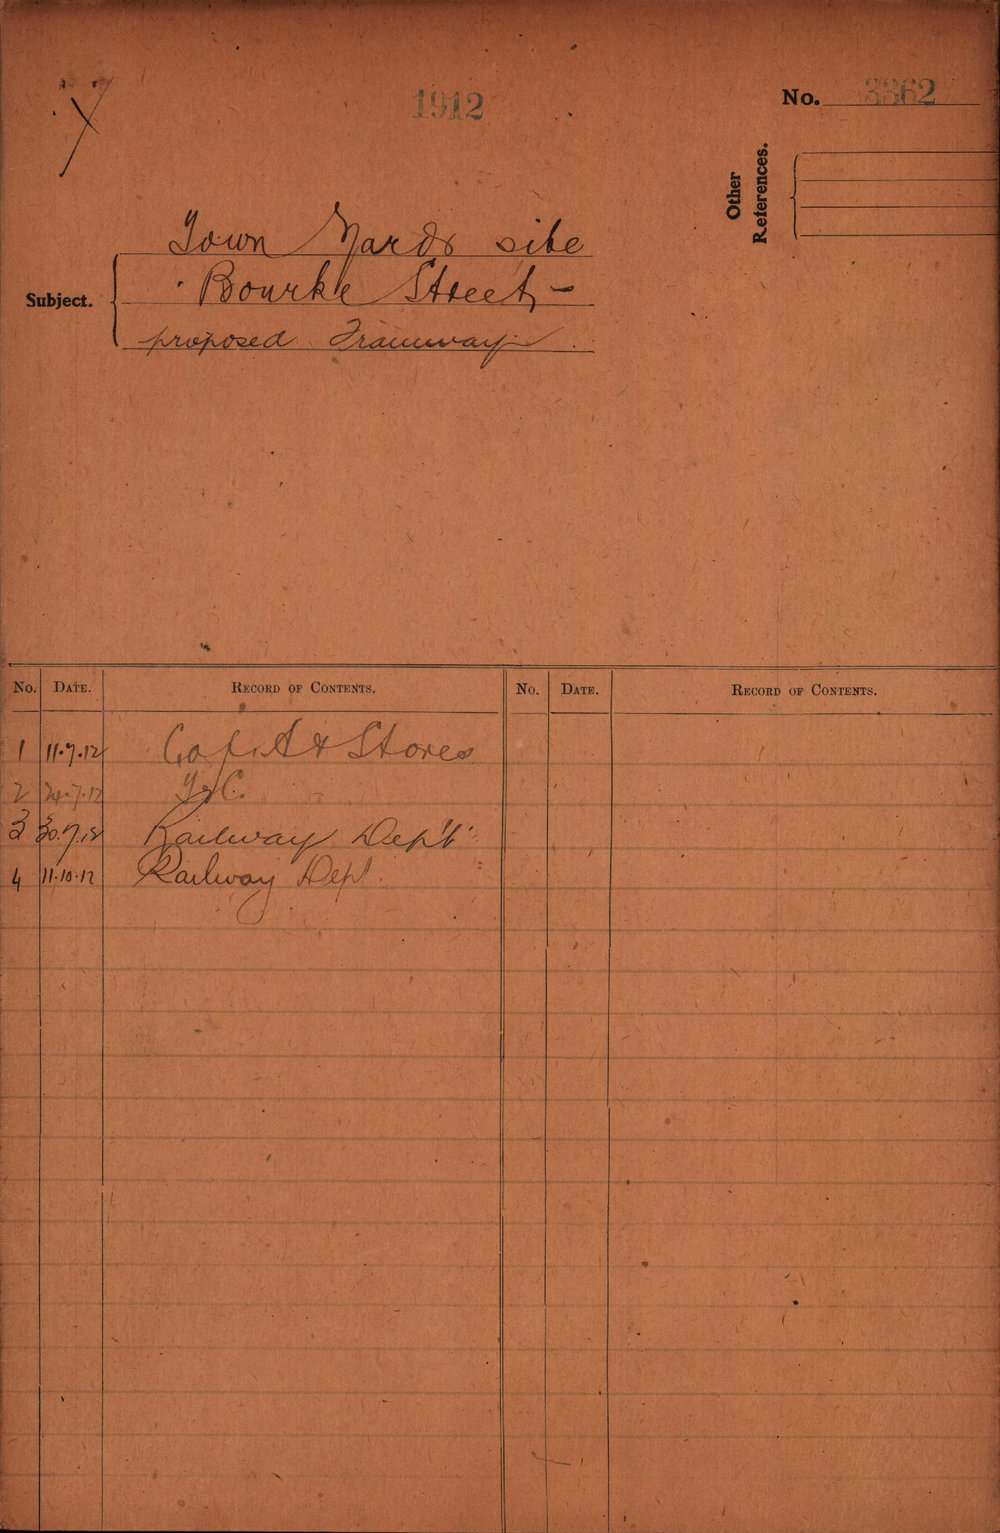 1912
No. 3362
Other
References.
Town Yards site
Subject.
Bourke Street -
proposed Tramway
No. DATE. RECORD OF CONTENTS. No. DATE. RECORD OF CONTENTS.
1 11.7.12 & Stores
2 24.7.12
3 30.7.12 Railway Dep't
4 11.10.12 Railway Dept.